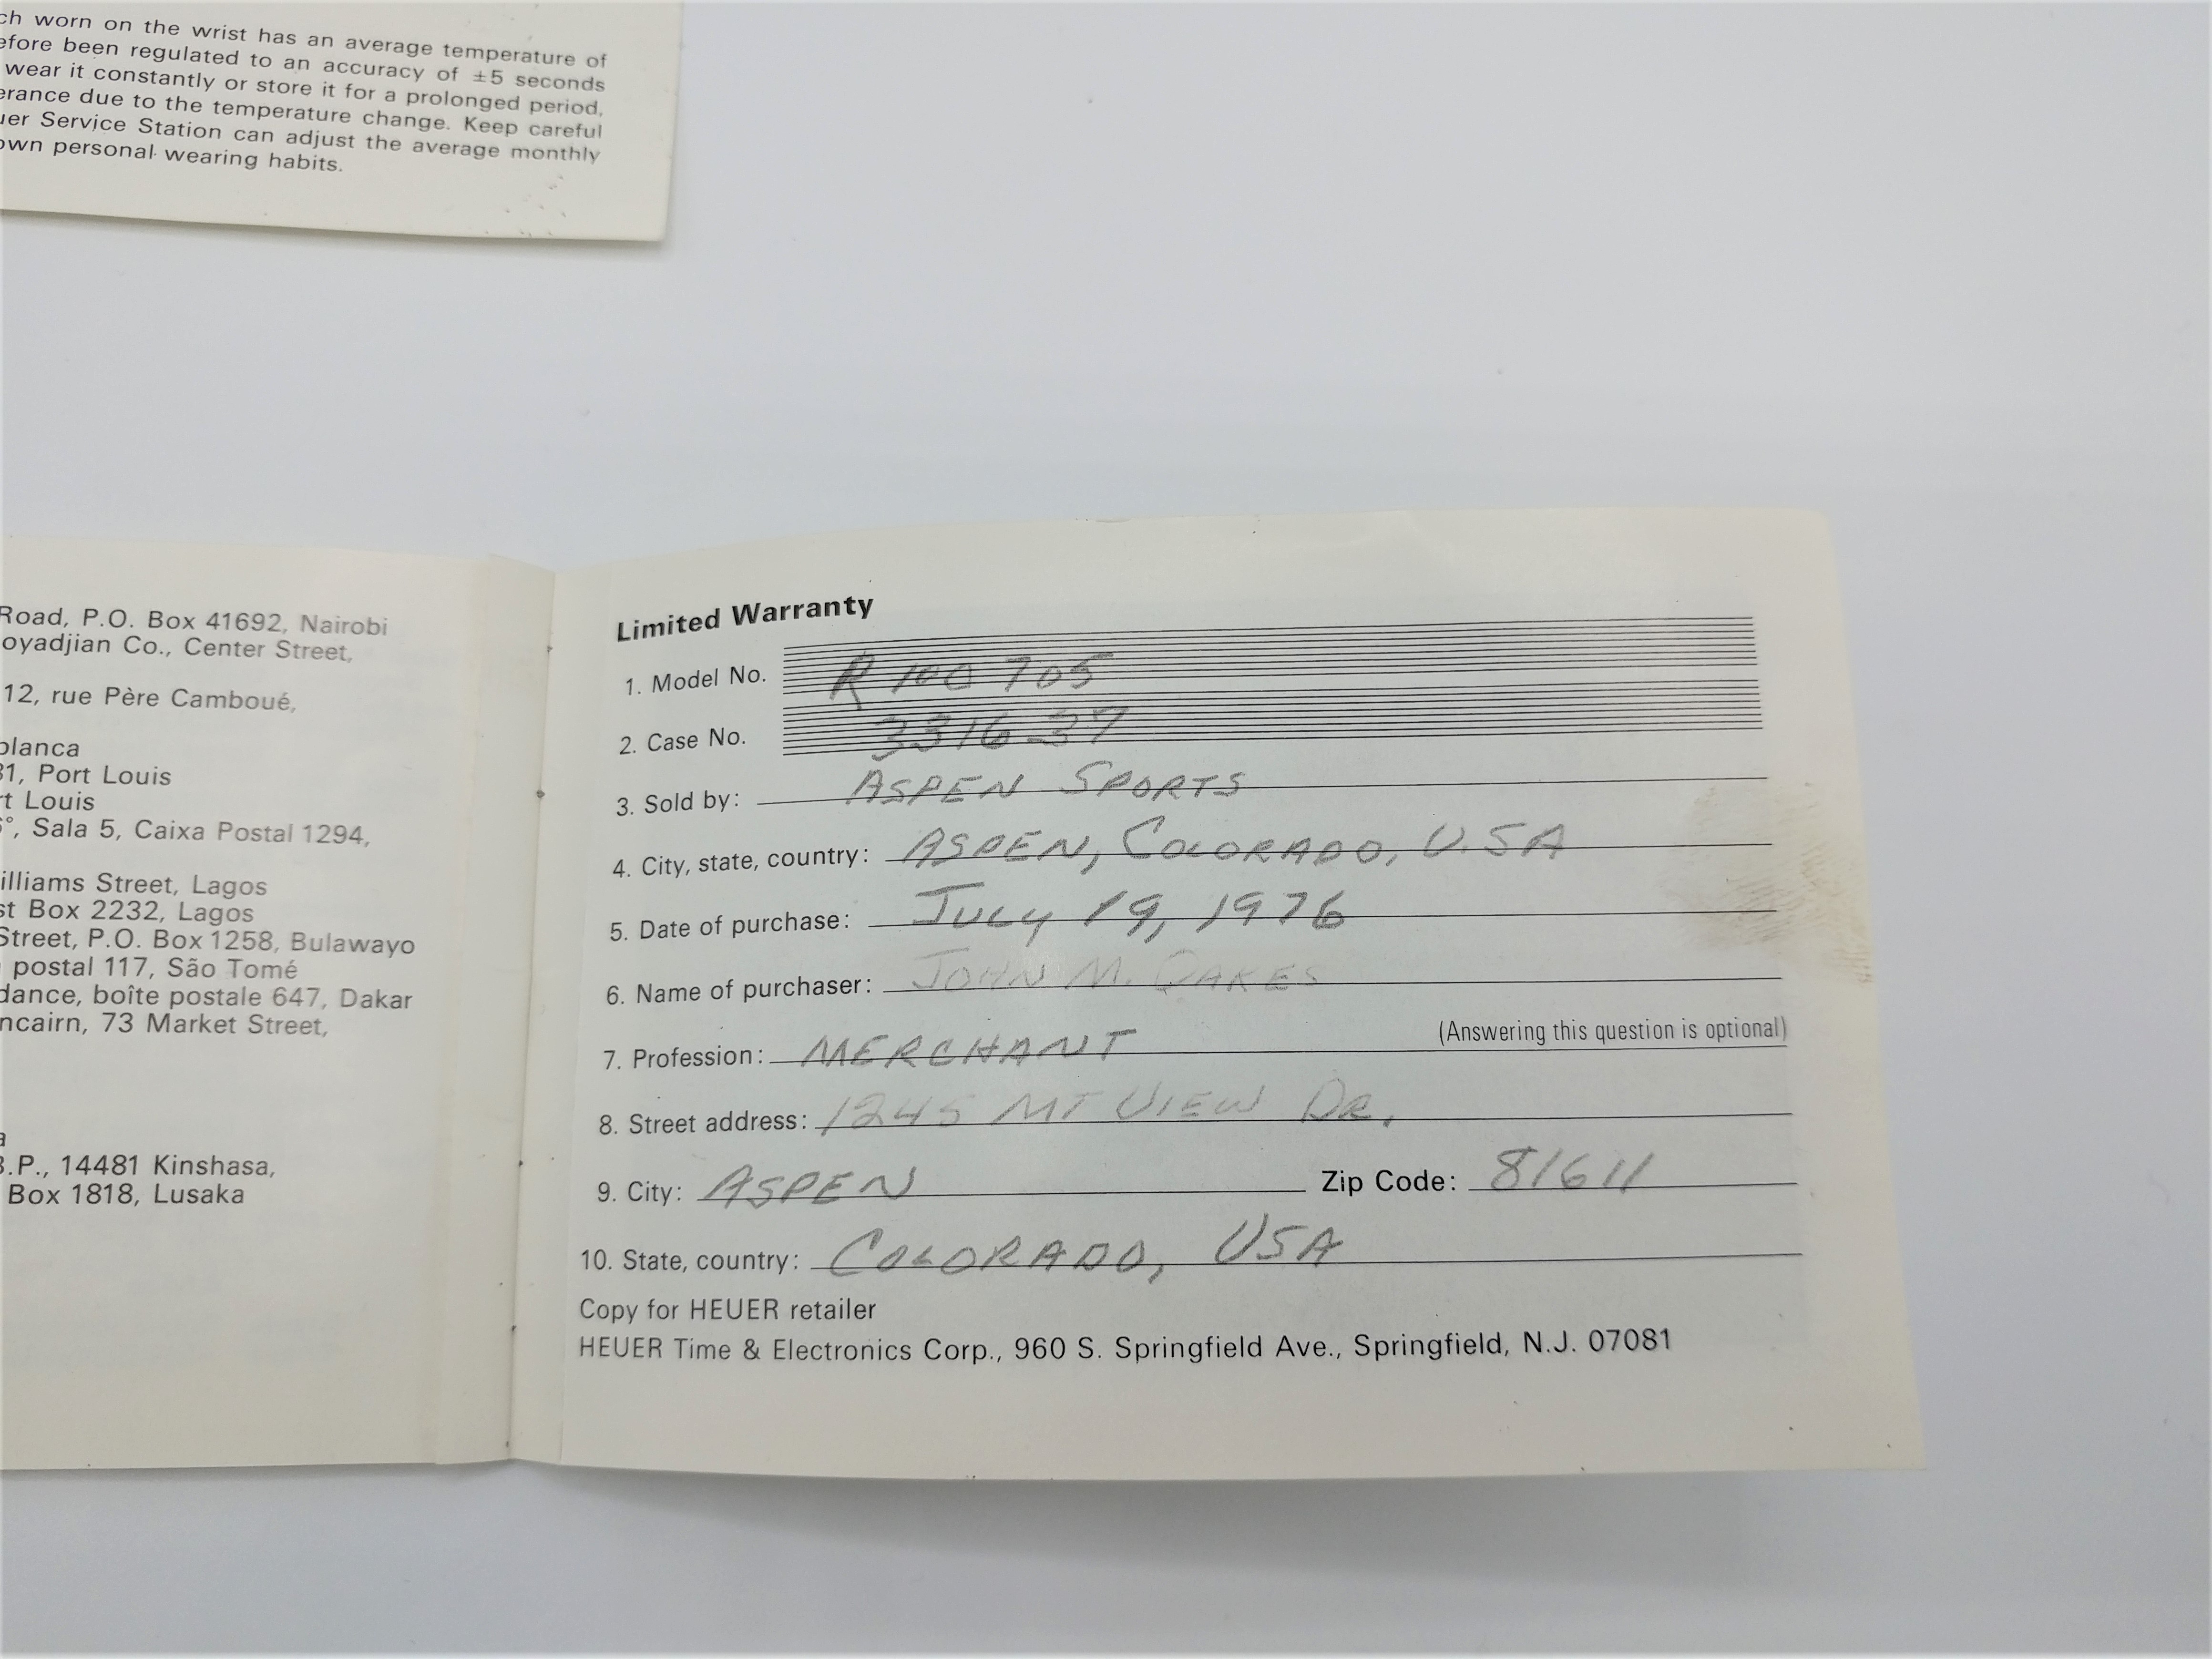 ch worn on the wrist has an average temperature of
efore been regulated to an accuracy of ±5 seconds
wear it constantly or store it for a prolonged period,
erance due to the temperature change. Keep careful
uer Service Station can adjust the average monthly
own personal wearing habits.
Road, P.O. Box 41692, Nairobi
oyadjian Co., Center Street,
12, rue Père Camboué,
blanca
31, Port Louis
rt Louis
°, Sala 5, Caixa Postal 1294,
illiams Street, Lagos
st Box 2232, Lagos
Street, P.O. Box 1258, Bulawayo
postal 117, São Tomé
dance, boîte postale 647, Dakar
ncairn, 73 Market Street,
a
B.P., 14481 Kinshasa,
Box 1818, Lusaka
Limited Warranty
1. Model No. R 100 705
2. Case No. 3316 37
3. Sold by: ASPEN SPORTS
4. City, state, country: ASPEN, COLORADO, U.SA
5. Date of purchase: JULY 19, 1976
6. Name of purchaser: JOHN M. OAKES
7. Profession: MERCHANT (Answering this question is optional)
8. Street address: 1245 MT VIEW DR.
9. City: ASPEN Zip Code: 81611
10. State, country: COLORADO, USA
Copy for HEUER retailer
HEUER Time & Electronics Corp., 960 S. Springfield Ave., Springfield, N.J. 07081